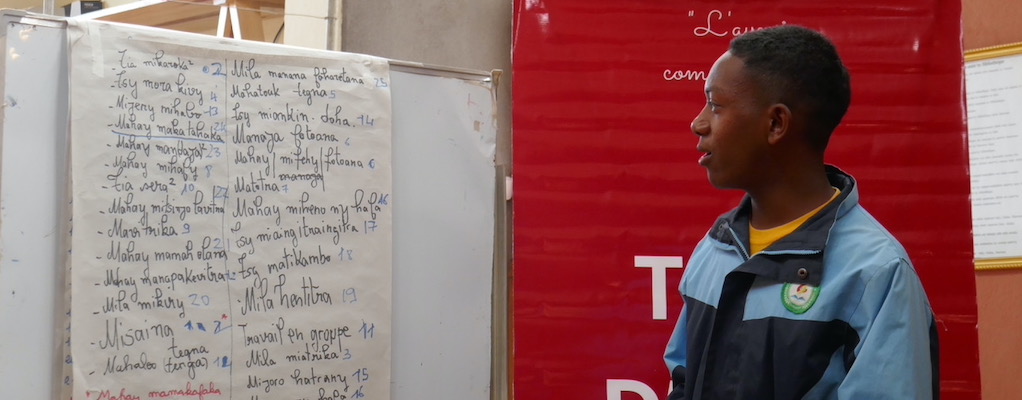 - Tia mikaroka² 2
- Tsy mora kivy 4
- Mijery mihabo 13
- Mahay makatahaka
- Mahay mandaja² 23
- Mahay mihafy 8
- Tia sera² 10
- Mahay mitsinjo lavitra
- Marotrika 9
- Mahay mamah olana 21
- Mahay manapakevitra
- Mila mikiry 20
- Misaina
tegna
- Mahaleo (tegna) 12
* Mahay mamakafaka
Mila manana fahavetana 25
Mahatouk tegna 5
Tsy miankin-doha. 14
Manaja fotoana 6
Mahay/mitehy/fotoana 6
manaja
Matotra 7
Mahay miheno ny hafa 16
Tsy miaingitraingitra 17
Tsy matikambo 18
- Mila hentitra 19
Travail en groupe 11
Mila miatrika 3
Mijoro hatrany 15
16
"L'av
com
T
D